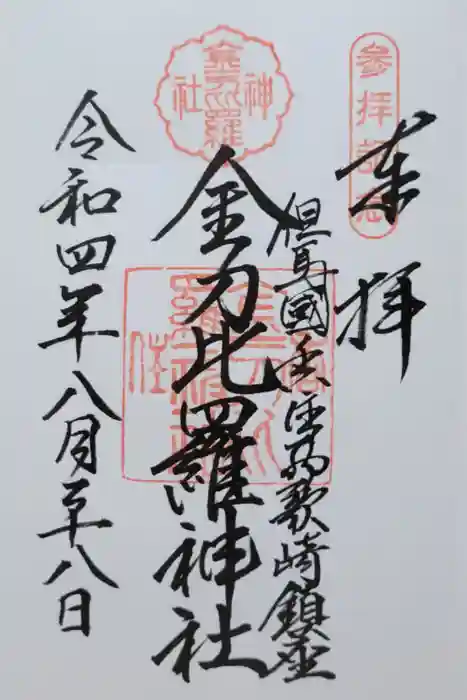 参拝記念
奉拝
但馬國香住歌崎鎮座
金刀比羅
神社
金刀比羅神社
令和四年八月二十八日